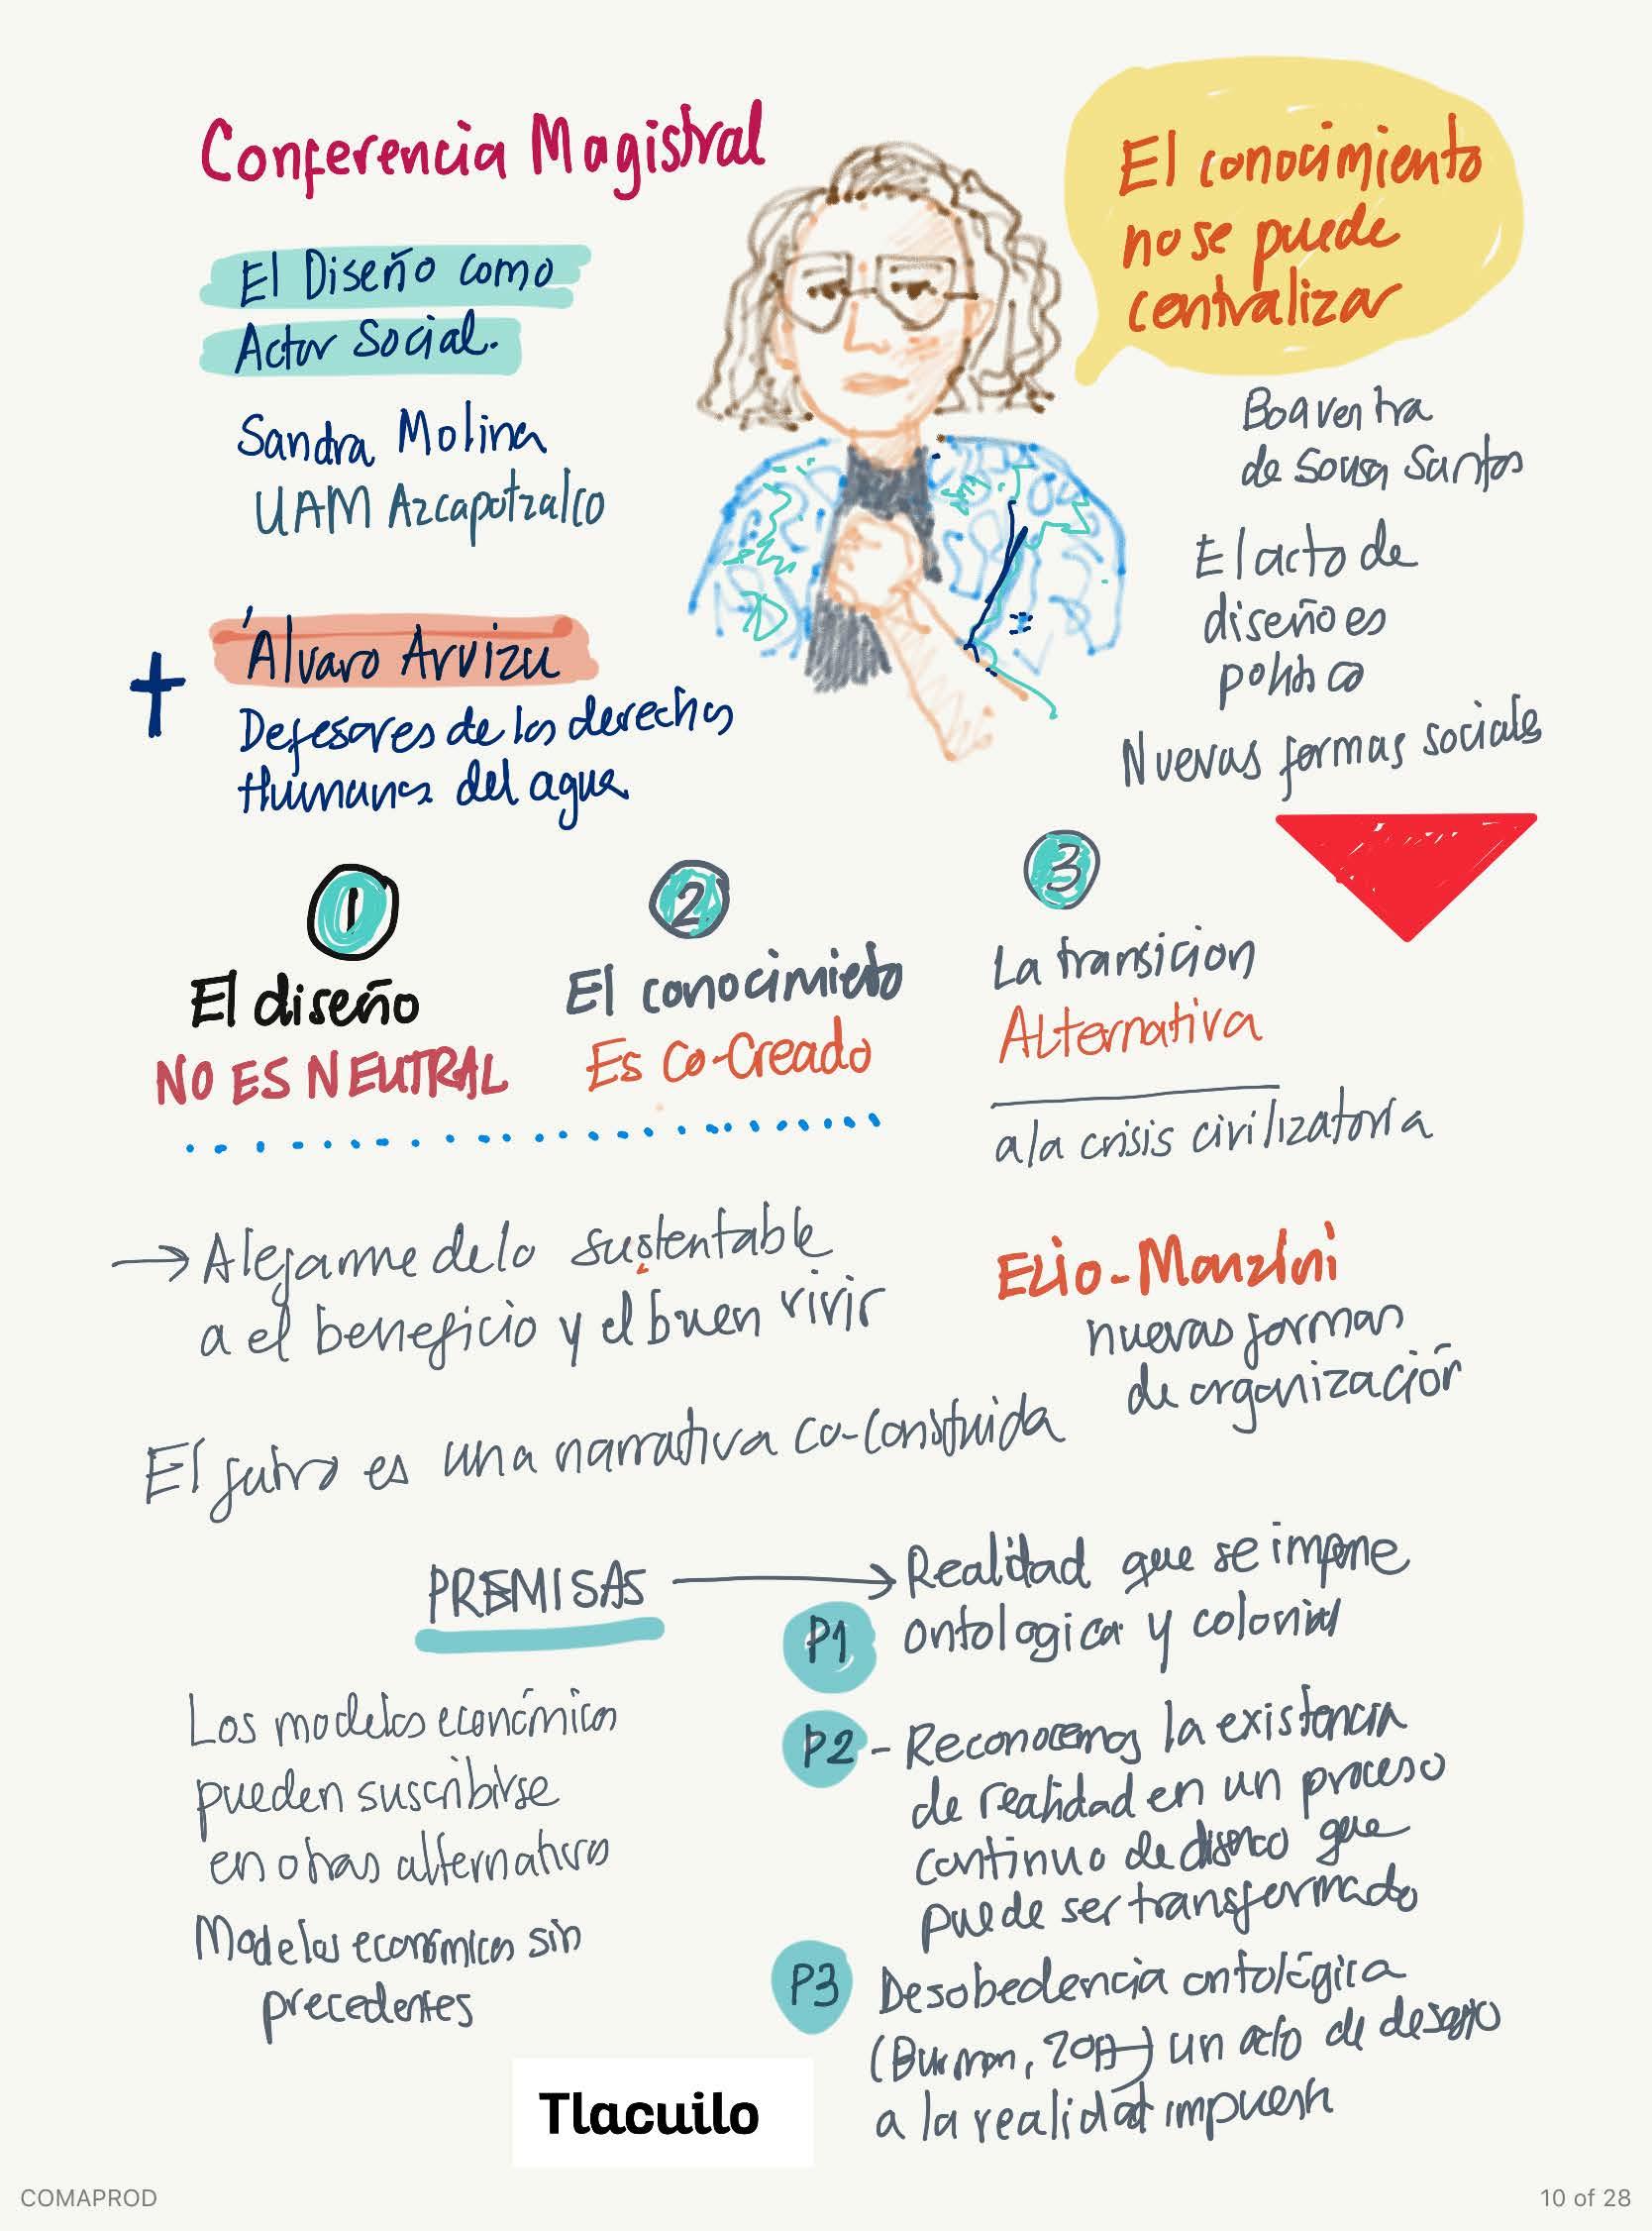 Conferencia Magistral
El Diseño como
Actor Social.
Sandra Molina
UAM Azcapotzalco
Álvaro Arvizu
Defesores de los derechos
Humanos del agua
El conocimiento
no se puede
centralizar
Boaventra
de Sousa Santos
El acto de
diseño es
político
Nuevas formas sociales
1
El diseño
NO ES NEUTRAL
2
El conocimieto
Es Co-Creado
3
La transicion
Alternativa
a la crisis civilizatoria
→ Alejarme de lo sustentable
a el beneficio y el buen vivir
Ezio-Manzini
nuevas formas
de organización
El futuro es una narrativa co-construida
PREMISAS → Realidad que se impone
P1 ontologica y colonial
Los modelos económicos
pueden suscribirse
en otras alternativas
Modelos económicos sin
precedentes
P2 - Reconocemos la existencia
de realidad en un proceso
continuo de diseño que
puede ser transformado
P3 Desobedencia ontológica
(Burman, 2017) un acto de desafío
a la realidad impuesta
Tlacuilo
COMAPROD
10 of 28